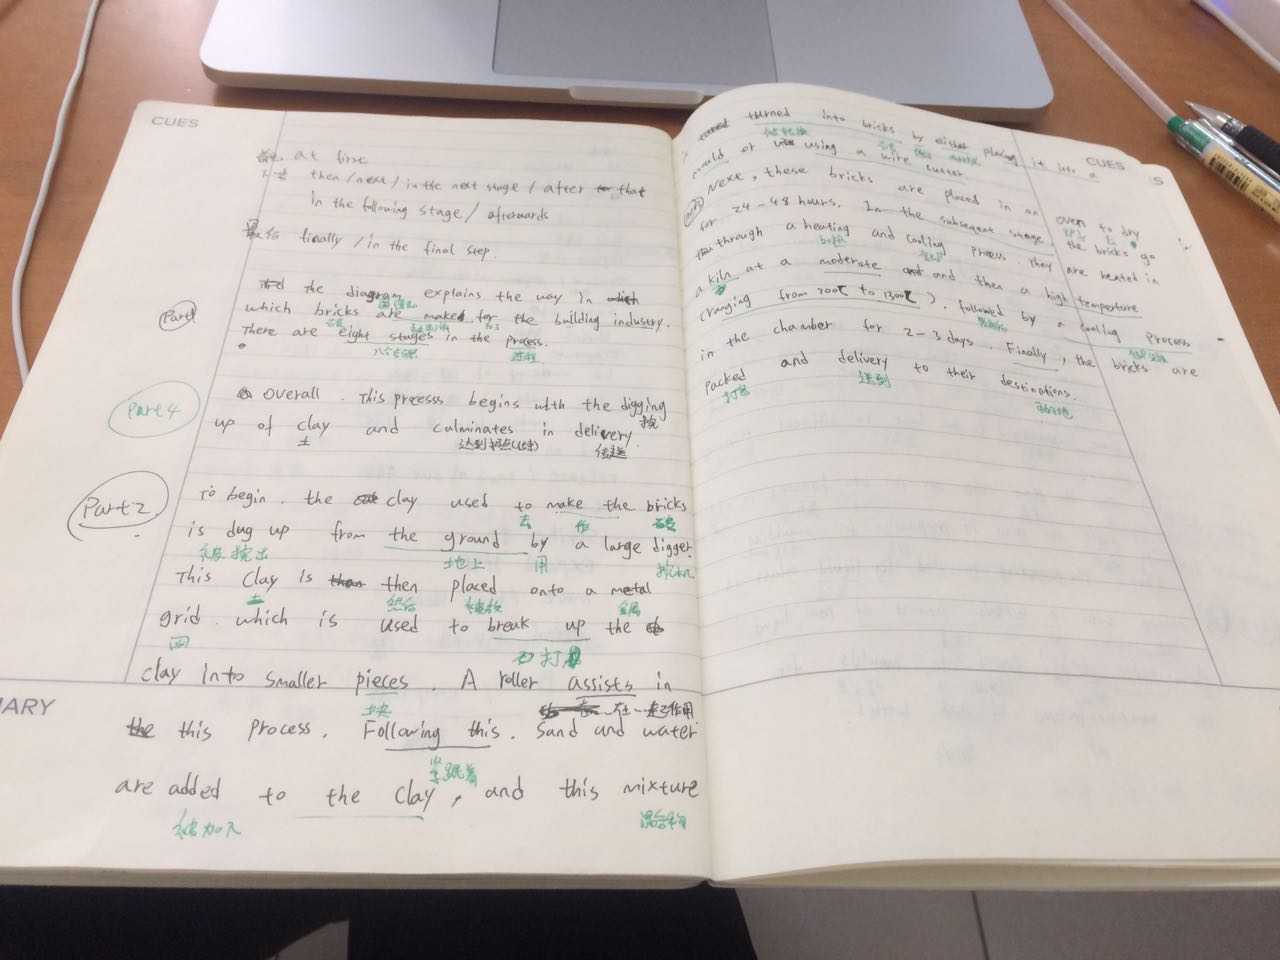 CUES
at first
then / next / in the next stage / after that
in the following stage / afterwards
最后 finally / in the final step.
the diagram explains the way in which
Part1
which bricks are made for the building industry.
There are eight stages in the process.
八个 过程
Part 4
Overall. This process begins with the digging
挖
up of clay and culminates in delivery.
土
To begin. the clay used to make the bricks
去 作
Part2
is dug up from the ground by a large digger.
被挖出 地上 用
This clay is then placed onto a metal
土 然后 被放
grid. which is used to break up the
clay into smaller pieces. A roller assists in
土块
MARY
the this process. Following this. Sand and water
跟着
are added to the clay, and this mixture
被加入 混合物
CUES
S
turned into bricks by either placing it into a
mould or using a wire cutter
Next, these bricks are placed in an oven to dry
for 24 - 48 hours. In the subsequent stage, the bricks go
through a heating and cooling process. They are heated in
a kiln at a moderate and then a high temperture
(ranging from 200℃ to 1300℃). followed by a cooling process
in the chamber for 2 - 3 days. Finally, the bricks are
packed and delivery to their destinations.
打包 送到 目的地